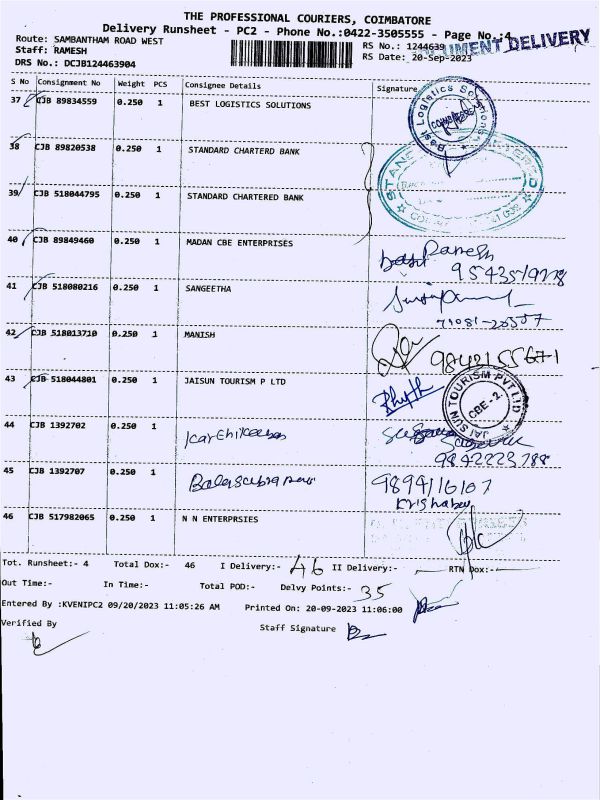 THE PROFESSIONAL COURIERS, COIMBATORE
Delivery Runsheet - PC2 - Phone No.:0422-3505555 - Page No.:4
DOCUMENT DELIVERY
Route: SAMBANTHAM ROAD WEST
RS No.: 1244639
Staff: RAMESH
RS Date: 20-Sep-2023
DRS No.: DCJB124463904
S No Consignment No Weight PCS Consignee Details Signature
37 CJB 89834559 0.250 1 BEST LOGISTICS SOLUTIONS
Best Logistics Solutions
38 CJB 89820538 0.250 1 STANDARD CHARTERD BANK
39 CJB 518044795 0.250 1 STANDARD CHARTERED BANK
40 CJB 89849460 0.250 1 MADAN CBE ENTERPRISES
Ramesh
41 CJB 518080216 0.250 1 SANGEETHA
42 CJB 518013710 0.250 1 MANISH
43 CJB 518044801 0.250 1 JAISUN TOURISM P LTD
JAI SUN TOURISM PVT LTD
CBE-2
44 CJB 1392702 0.250 1 Karthikeyan
9842223788
45 CJB 1392707 0.250 1 Balasubramani
9894116107
46 CJB 517982065 0.250 1 N N ENTERPRSIES
Tot. Runsheet:- 4 Total Dox:- 46 I Delivery:- 46 II Delivery:- RTN Dox:-
Out Time:- In Time:- Total POD:- Delvy Points:- 35
Entered By :KVENIPC2 09/20/2023 11:05:26 AM Printed On: 20-09-2023 11:06:00
Verified By
Staff Signature